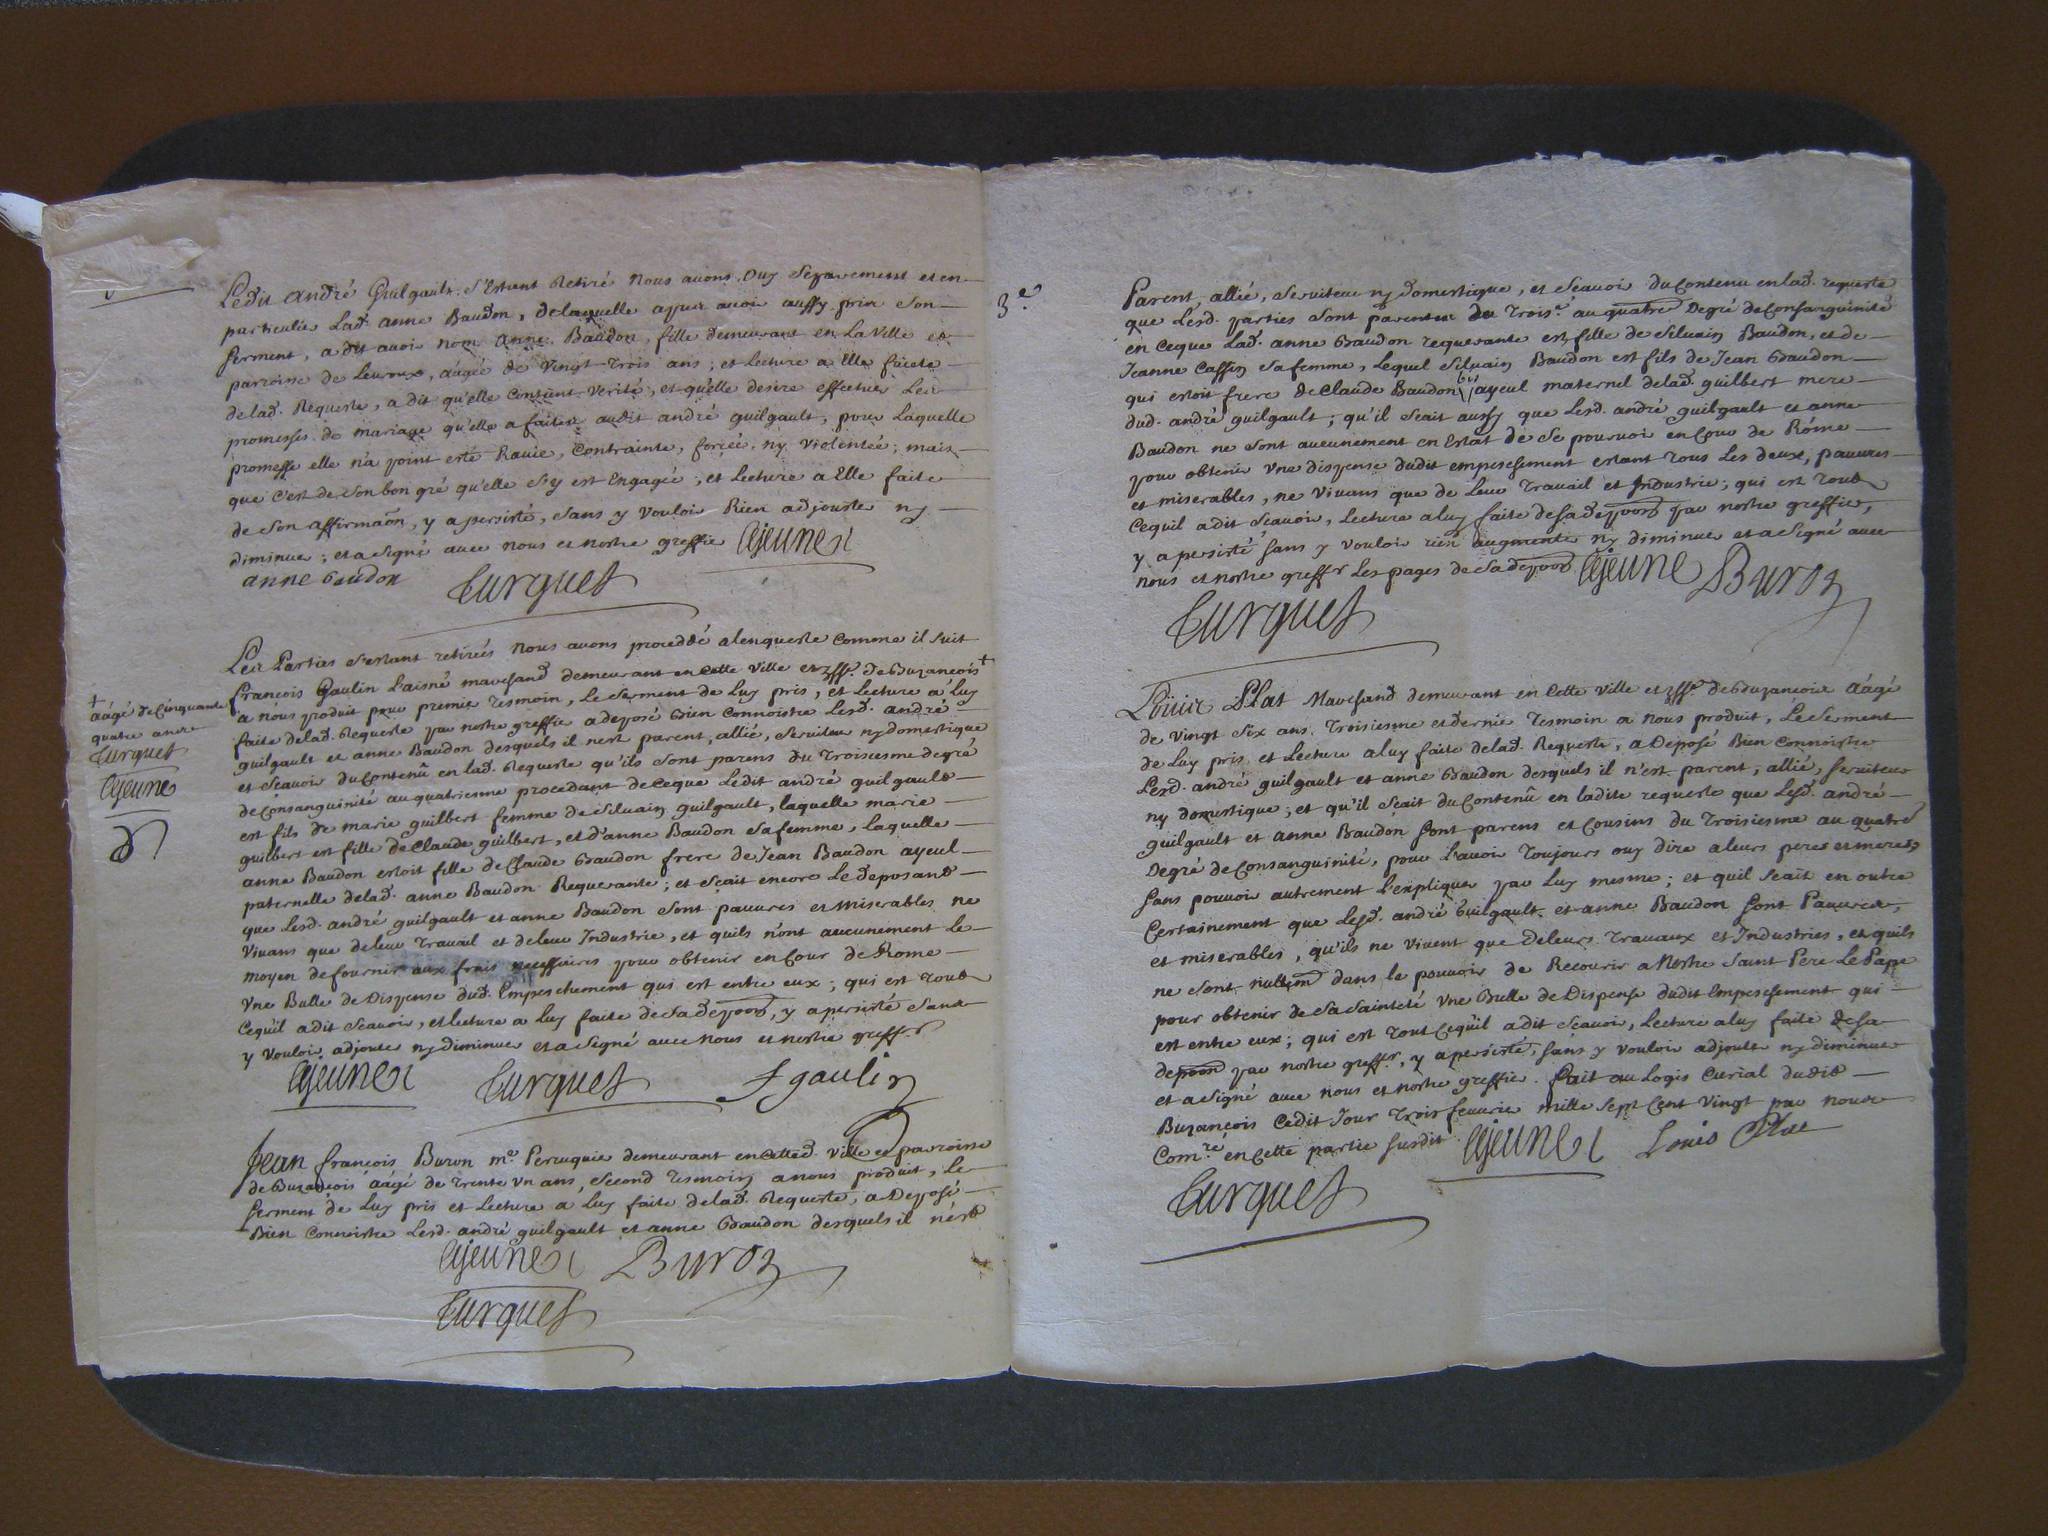 Ledit andré Guilgault s'estant Retiré Nous avons Ouy separement et en
particulier Lad. anne Baudon, de laquelle apres avoir aussy pris son
serment, a dit avoir nom anne Baudon, fille demeurant en La Ville et
parroisse de Levroux, aagée de Vingt Trois ans; et Lecture a Elle faicte
de lad. Requeste, a dit qu'elle Contient Verité, et qu'elle desire effectuer Les
promesses de mariage qu'elle a faites audit andré guilgault, pour Laquelle
promesse elle n'a point esté Ravie, Contrainte, forcée, ny Violentée; mais
que c'est de son bon gré qu'elle s'y est Engagée, et Lecture a Elle faite
de son affirmaõn, y a persisté, sans y Vouloir Rien adjouster ny
diminuer; et a signé avec nous et nostre greffier Lejeune
anne baudon Turquet
Les Parties s'estant retirées nous avons proceddé a lenqueste comme il suit
françois Gaulin L'aisné marchand demeurant en cette Ville et psse. de Buzançois +
a nous produit pour premier tesmoin, Le serment de Luy pris, et Lecture a Luy
faite de lad. Requeste par nostre greffier a deposé bien Connoistre Lesd. andré
guilgault et anne Baudon desquels il nest parent, allié, serviteur ny domestique
et sçavoir du Contenû en lad. Requeste qu'ils sont parens du Troisiesme degré
de Consanguinité au quatriesme procedant de ceque Ledit andré guilgault
est fils de marie guilbert femme de silvain guilgault, laquelle marie
guilbert est fille de Claude guilbert, et d'anne Baudon sa femme, laquelle
anne Baudon estoit fille de Claude Baudon frere de Jean Baudon ayeul
paternelle de lad. anne Baudon Requerante; et sçait encore Le deposant
que Lesd. andré guilgault et anne Baudon sont pauvres et miserables ne
Vivans que de leur Travail et de leur Industrie, et quils n'ont aucunement Le
moyen de fournir aux frais necessaires pour obtenir en Cour de Rome
Une Bulle de Dispense dud. Empeschement qui est entre eux; qui est tout
Cequ'il a dit sçavoir, et lecture a luy faite de sa depoon, y a persisté sans
y Vouloir adjouter ny diminuer et a signé avec nous et nostre greffr.
Lejeune Turquet f gaulin
Jean françois Buron me. Perruquier demeurant en cetted. Ville et parroisse
de Buzançois aagé de Trente un ans, second Tesmoin a nous produit, Le
serment de Luy pris et Lecture a Luy faite de lad. Requeste, a Deposé
Bien Connoistre Lesd. andré guilgault et anne Baudon desquels il n'est
Lejeune Buron
Turquet
+
aagé de Cinquante
quatre ans
Turquet
Lejeune
3e.
Parent, allié, serviteur ny domestique, et sçavoir du Contenu en lad. requeste
que Lesd. parties sont parentes du Troise. au quatre Degré de Consanguinité
en ceque Lad. anne Baudon requerante est fille de silvain Baudon, et de
Jeanne Caffin sa femme, Lequel silvain Baudon est fils de Jean Baudon
qui estoit frere de Claude Baudon bis ayeul maternel de lad. guilbert mere
dud. andré guilgault; qu'il sçait aussy que Lesd. andré guilgault et anne
Baudon ne sont aucunement en Estat de se pourvoir en Cour de Rôme
pour obtenir Une dispense dudit empeschement estant tous Les deux, pauvres
et miserables, ne Vivans que de Leur Travail et Industrie; qui est tout
Cequil a dit sçavoir, Lecture a luy faite de sa depoon par nostre greffier,
y a persisté sans y vouloir rien augmenter ny diminuer et a signé avec
nous et nostre greffr Les pages de sa depoon Lejeune Buron
Turquet
Louis Plat Marchand demeurant en Cette Ville et psse. de Buzançois aâgé
de Vingt six ans, Troisiesme et dernier Tesmoin a nous produit, Le serment
de Luy pris et Lecture a luy faite de lad. Requeste, a Deposé Bien connoistre
Lesd. andré guilgault et anne Baudon desquels il n'est parent, allié, serviteur
ny domestique; et qu'il sçait du Contenû en ladite requeste que Lesd. andré
guilgault et anne Baudon sont parens et Cousins du Troisiesme au quatre
Degré de Consanguinité, pour l'avoir toujours ouy dire a leurs peres et meres,
sans pouvoir autrement l'expliquer par Luy mesme; et quil sçait en outre
Certainement que Lesd. andré Guilgault et anne Baudon sont Pauvres,
et miserables, qu'ils ne Vivent que de leurs Travaux et Industries, et quils
ne sont nullem dans le pouvoir de Recourir a Nostre saint Pere Le Pape
pour obtenir de Sa Sainteté Une Bulle de Dispense dudit Empeschement qui
est entre eux; qui est tout Cequ'il a dit sçavoir, Lecture a luy faite de sa
depoon par nostre greffr., y a persisté, sans y Vouloir adjouter ny diminuer
et a signé avec nous et nostre greffier. Fait au Logis Curial dudit
Buzançois Cedit Jour Trois fevrier mille sept Cent Vingt par nous
Comre. en Cette partie susdit Lejeune Louis Plat
Turquet